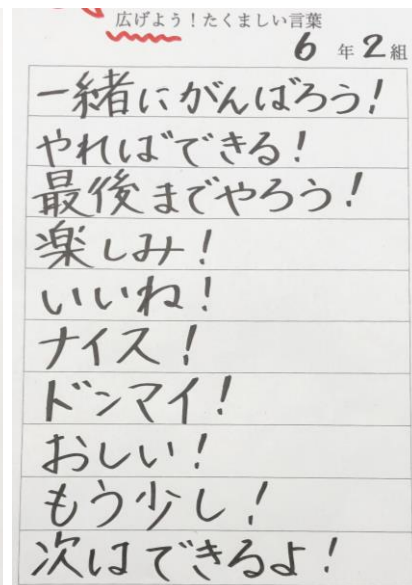 広げよう！たくましい言葉
6年2組
一緒にがんばろう！
やればできる！
最後までやろう！
楽しみ！
いいね！
ナイス！
ドンマイ！
おしい！
もう少し！
次はできるよ！